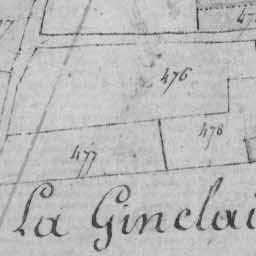 476
478
477
La Ginclai